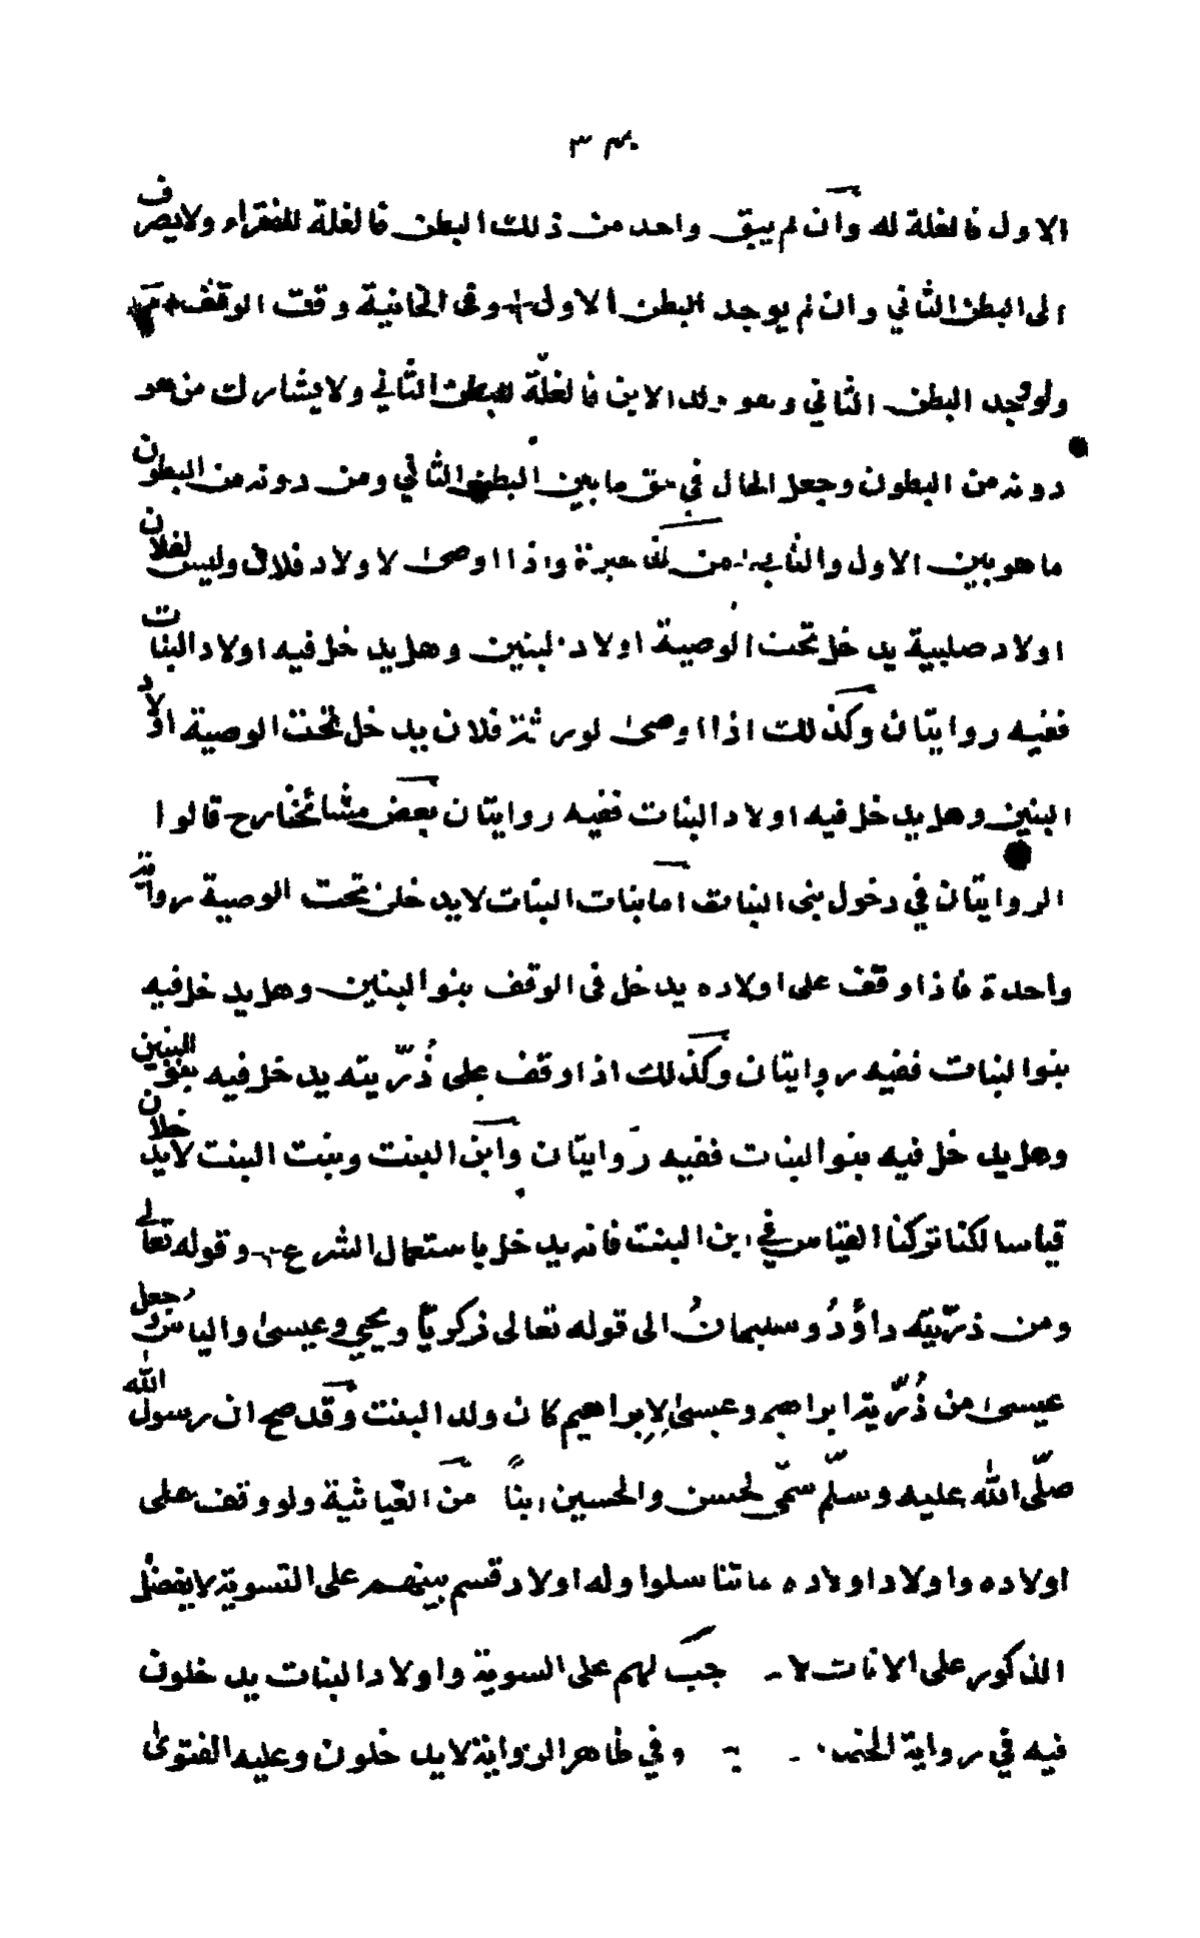 الاول فالغلة له وان لم يبق واحد من ذلك البطن فالغلة للفقراء ولا يصرف
الى البطن الثاني وان لم يوجد البطن الاول وفى الخانية وقت الوقف
ولو وجد البطن الثاني وهو ولد الابن فالغلّة للبطن الثاني ولا يشارك من هو
دونه من البطون وجعل الحال في حق ما بين البطن الثاني ومن دونه من البطون
ما هو بين الاول والثاني من واذا اوصى لاولاد فلان وليس لفلان
اولاد صلبية يدخل تحت الوصية اولاد البنين وهل يدخل فيه اولاد البنات
ففيه روايتان وكذلك اذا اوصى لورثة فلان يدخل تحت الوصية اولاد
البنين وهل يدخل فيه اولاد البنات ففيه روايتان بعض مشائخنا رح قالوا
الروايتان في دخول بنى البنات اما بنات البنات لا يدخلن تحت الوصية رواية
واحدة فاذا وقف على اولاده يدخل فى الوقف بنو البنين وهل يدخل فيه
بنو البنات ففيه روايتان وكذلك اذا وقف على ذُرّيته يدخل فيه بنو البنين
وهل يدخل فيه بنو البنات ففيه روايتان وابن البنت وبنت البنت لا يدخلان
قياسا لكنا تركنا القياس في ابن البنت فانه يدخل باستعمال الشرع وقوله تعالى
ومن ذرّيته داؤدُ وسليمانُ الى قوله تعالى زكريّا ويحيي وعيسىٰ والياس وجعل
عيسىٰ من ذُرّية ابراهيم وعيسىٰ لابراهيم كان ولد البنت وقد صح ان رسول الله
صلّى الله عليه وسلّم سمّى لحسن والحسين ابنًا من الغياثية ولو وقف على
اولاده واولاد اولاده ما تناسلوا وله اولاد قسم بينهم على التسوية لا يفضل
الذكور على الاناث لا جب لهم على السوية واولاد البنات يدخلون
فيه في رواية وفي ظاهر الرواية لا يدخلون وعليه الفتوىٰ